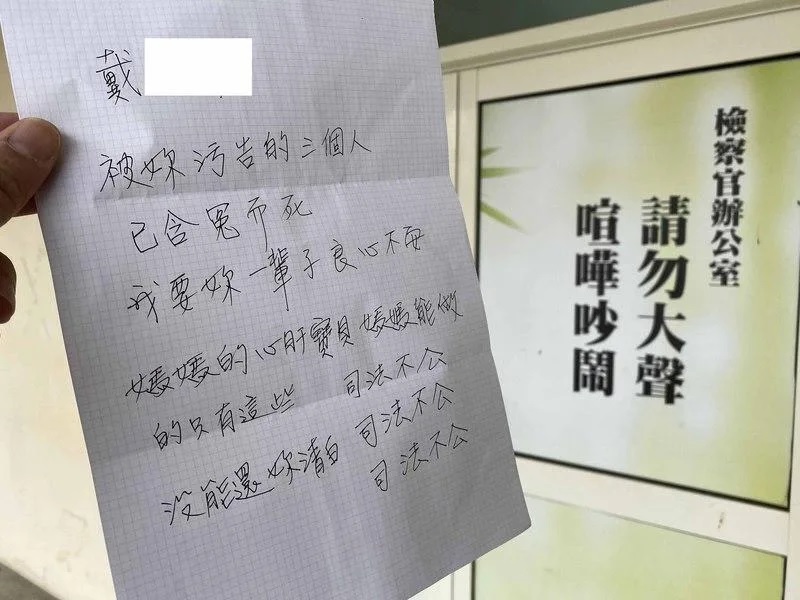 戴
被妳污告的三個人
已含冤而死
我要妳一輩子良心不安
媽媽的心肝寶貝媽媽能做
的只有這些 司法不公
沒能還妳清白 司法不公
司法不公
檢察官辦公室
請勿大聲
喧嘩吵鬧